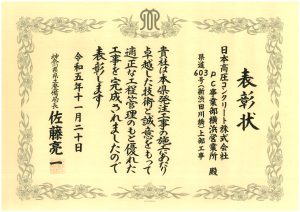 表彰状
日本高圧コンクリート株式会社
PC事業部横浜営業所 殿
県道603号(新浜田川橋)上部工事
貴社は本県発注工事の施工にあたり
卓越した技術と誠意をもって
適正な工程管理のもと優れた
工事を完成されましたので
表彰します
令和五年十一月二十日
神奈川県県土整備局長
佐藤亮一